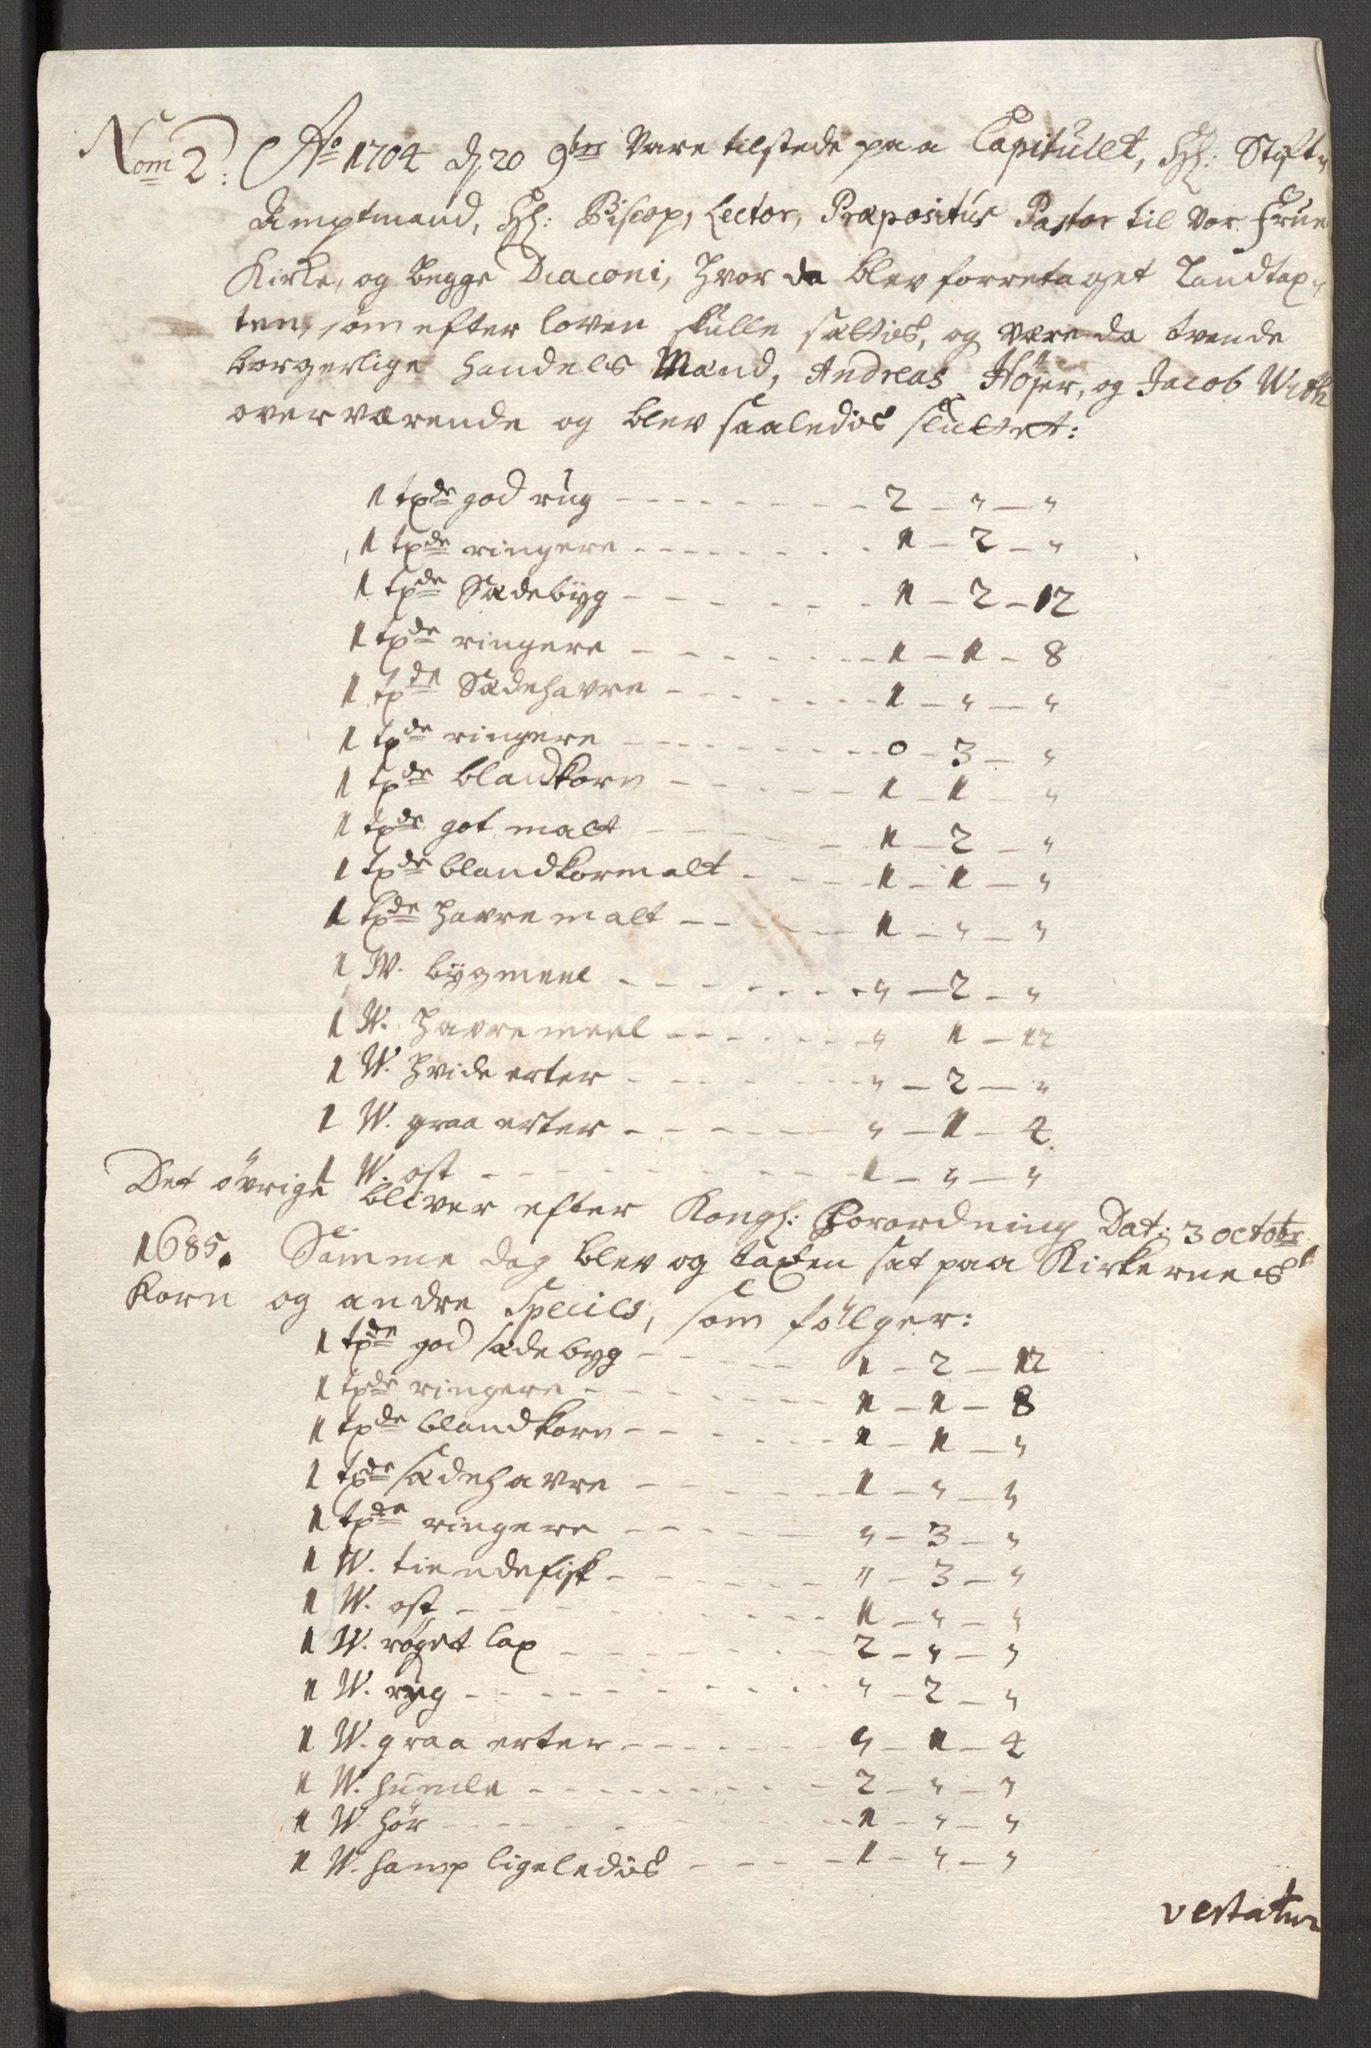 Nom 2: Ao 1704 d. 20 9brs Vare tilstede paa Capitulet, Hh: Stift-
Amptmand, Hh: Biscop, Lector, Præpositus Pastor til Vor Frue
Kirke, og begge Diaconi, hvor da blev forretaget Landtax-
ten, som efter loven skulle sættis, og være da tvende
borgerlige Handels Mænd, Andreas Höjer, og Jacob With
overværende og blev saaledis sluttet:
1 tpde god rug - - - - - - - 2 - " - "
1 tpde ringere - - - - - - - 1 - 2 - "
1 tpde Sædebyg - - - - - - - 1 - 2 - 12
1 tpde ringere - - - - - - - 1 - 1 - 8
1 tpde Sædehavre - - - - - - - 1 - " - "
1 tpde ringere - - - - - - - 0 - 3 - "
1 tpde blandkorn - - - - - - 1 - 1 - "
1 tpde got malt - - - - - - 1 - 2 - "
1 tpde blandkornmalt - - - - 1 - 1 - "
1 tpde havremalt - - - - - 1 - " - "
1 W. bygmeel - - - - - - - " - 2 - "
1 W. havremeel - - - - - - " 1 - 12
1 W. hvide erter - - - - - - " - 2 - "
1 W. graa erter - - - - - - " - 1 - 4
1 W. ost - - - - - - - - - 1 - " - "
Det øvrige bliver efter Kongl: Forordning Dat: 3 octobr
1685. Samme dag blev og taxten sat paa Kirkernes
Korn og andre Species, som fölger:
1 tpde god sædebyg - - - - - 1 - 2 - 12
1 tpde ringere - - - - - - - 1 - 1 - 8
1 tpde blandkorn - - - - - - 1 - 1 - "
1 tpde sædehavre - - - - - - 1 - " - "
1 tpde ringere - - - - - - " - 3 - "
1 W. tiendefisk - - - - - - " - 3 - "
1 W. ost - - - - - - - - - 1 - " - "
1 W. røget lax - - - - - - 2 - " - "
1 W. ryg - - - - - - - - - " - 2 - "
1 W. graa erter - - - - - - " - 1 - 4
1 W. humle - - - - - - - - 2 - " - "
1 W. hör - - - - - - - - - 1 - " - "
1 W. hamp ligeledis - - - - 1 - " - "
vertatur